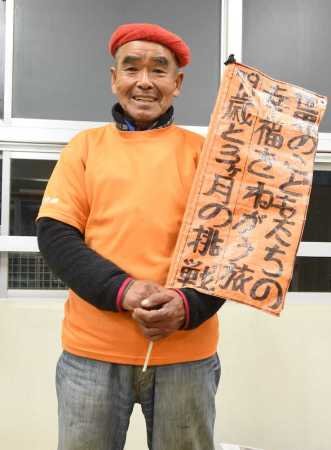 のこどもたちの
幸福をねがう旅
歳と三ヶ月の挑戦